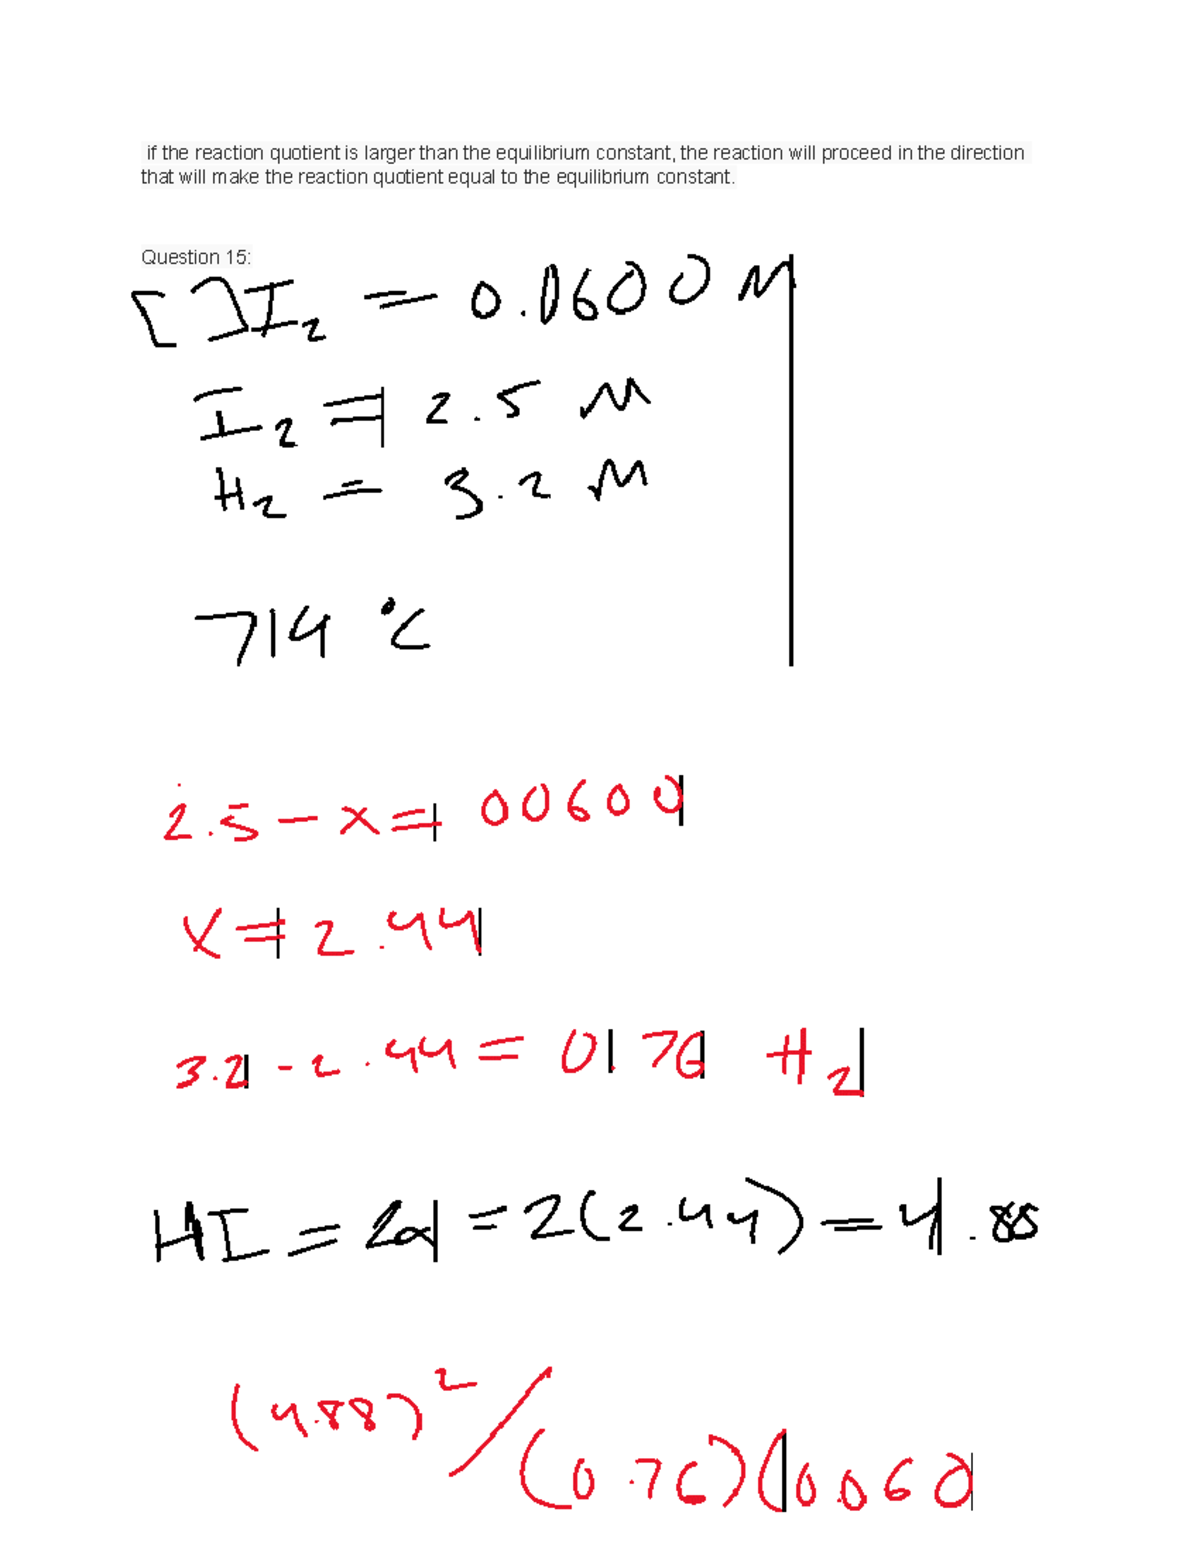 if the reaction quotient is larger than the equilibrium constant, the reaction will proceed in the direction
that will make the reaction quotient equal to the equilibrium constant.
Question 15:
[ ]I₂ = 0.0600 M
I₂ = 2.5 M
H₂ = 3.2 M
714 °C
2.5 - x = 00600
x = 2.44
3.2 - 2.44 = 0.76 H₂
HI = 2x = 2(2.44) = 4.88
(4.88)² / (0.76)(0.060